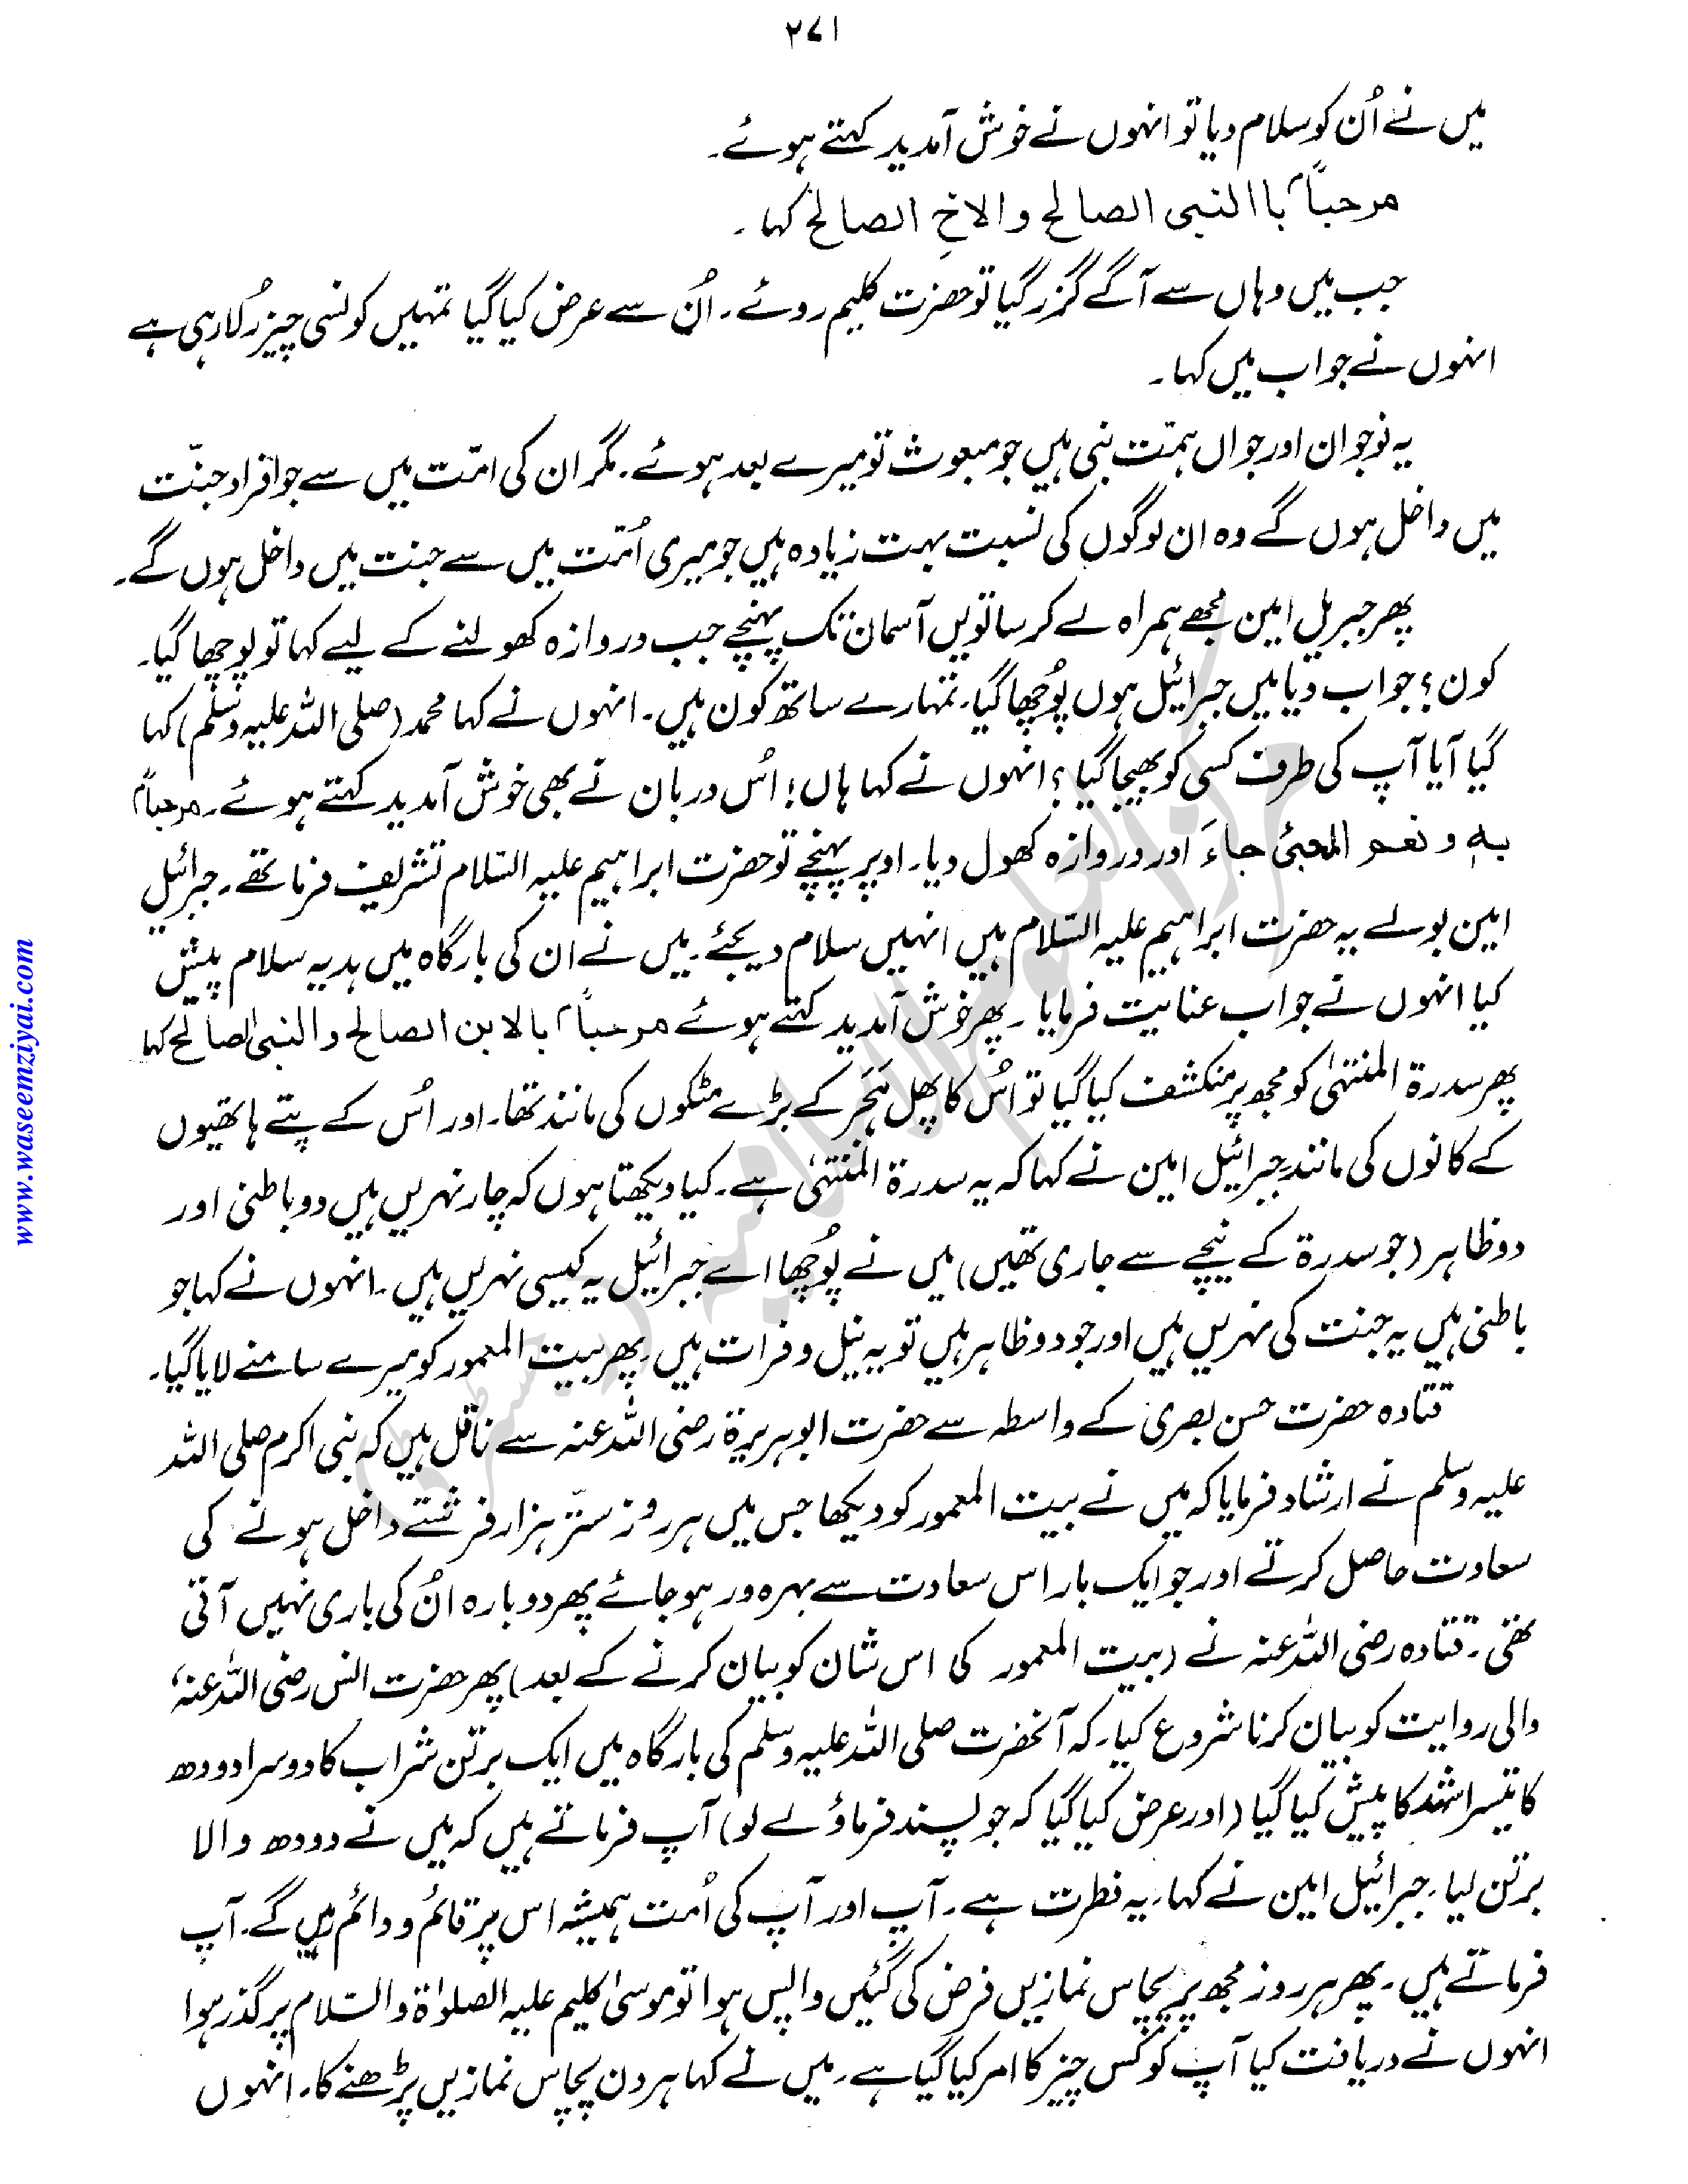 ۲۷۱
میں نے اُن کو سلام دیا تو انہوں نے خوش آمدید کہتے ہوئے۔
مرحباً باالنبی الصالح والاخِ الصالح کہا۔
جب میں وہاں سے آگے گزر گیا تو حضرت کلیم روئے۔ اُن سے عرض کیا گیا تمہیں کونسی چیز رُلا رہی ہے
انہوں نے جواب میں کہا۔
یہ نوجوان اور جواں ہمّت نبی ہیں جو مبعوث تو میرے بعد ہوئے۔ مگر ان کی امّت میں سے جو افراد جنّت
میں داخل ہوں گے وہ ان لوگوں کی نسبت بہت زیادہ ہیں جو میری اُمّت میں سے جنت میں داخل ہوں گے۔
پھر جبریل امین مجھے ہمراہ لے کر ساتویں آسمان تک پہنچے جب دروازہ کھولنے کے لیے کہا تو پوچھا گیا۔
کون؟ جواب دیا میں جبرائیل ہوں پُوچھا گیا۔ تمہارے ساتھ کون ہیں۔ انہوں نے کہا محمد (صلی اللہ علیہ وسلم) کہا
گیا آیا آپ کی طرف کسی کو بھیجا گیا؟ انہوں نے کہا ہاں! اُس دربان نے بھی خوش آمدید کہتے ہوئے۔ مرحباً
بہٖ و نعم المجیٔ جاءَ اور دروازہ کھول دیا۔ اوپر پہنچے تو حضرت ابراہیم علیہ السّلام تشریف فرما تھے۔ جبرائیل
امین بولے یہ حضرت ابراہیم علیہ السّلام ہیں انہیں سلام دیجئے۔ میں نے ان کی بارگاہ میں ہدیہ سلام پیش
کیا انہوں نے جواب عنایت فرمایا۔ پھر خوش آمدید کہتے ہوئے مرحباً بالابن الصالح والنبی الصالح کہا
پھر سدرۃ المنتہیٰ کو مجھ پر منکشف کیا گیا تو اُس کا پھل ہَجَر کے بڑے مٹکوں کی مانند تھا۔ اور اُس کے پتے ہاتھیوں
کے کانوں کی مانند جبرائیل امین نے کہا کہ یہ سدرۃ المنتہیٰ ہے۔ کیا دیکھتا ہوں کہ چار نہریں ہیں دو باطنی اور
دو ظاہر (جو سدرۃ کے نیچے سے جاری تھیں) میں نے پُوچھا اے جبرائیل یہ کیسی نہریں ہیں۔ انہوں نے کہا جو
باطنی ہیں یہ جنت کی نہریں ہیں اور جو دو ظاہر ہیں تو یہ نیل و فرات ہیں۔ پھر بیت المعمور کو میرے سامنے لایا گیا۔
قتادہ حضرت حسن بصری کے واسطہ سے حضرت ابوہریرۃ رضی اللہ عنہ سے ناقل ہیں کہ نبی اکرم صلی اللہ
علیہ وسلم نے ارشاد فرمایا کہ میں نے بیت المعمور کو دیکھا جس میں ہر روز ستّر ہزار فرشتے داخل ہونے کی
سعادت حاصل کرتے اور جو ایک بار اس سعادت سے بہرہ ور ہو جائے پھر دوبارہ اُن کی باری نہیں آتی
تھی۔ قتادہ رضی اللہ عنہ نے (بیت المعمور کی اس شان کو بیان کرنے کے بعد) پھر حضرت انس رضی اللہ عنہ
والی روایت کو بیان کرنا شروع کیا۔ کہ آنحضرت صلی اللہ علیہ وسلم کی بارگاہ میں ایک برتن شراب کا دوسرا دودھ
کا تیسرا شہد کا پیش کیا گیا (اور عرض کیا گیا کہ جو پسند فرماؤ لے لو) آپ فرماتے ہیں کہ میں نے دودھ والا
برتن لیا۔ جبرائیل امین نے کہا۔ یہ فطرت ہے۔ آپ اور آپ کی اُمت ہمیشہ اس پر قائم و دائم رہیں گے۔ آپ
فرماتے ہیں۔ پھر ہر روز مجھ پر پچاس نمازیں فرض کی گئیں واپس ہوا تو موسیٰ کلیم علیہ الصلوٰۃ والسّلام پر گذر ہوا
انہوں نے دریافت کیا آپ کو کس چیز کا امر کیا گیا ہے۔ میں نے کہا ہر دن پچاس نمازیں پڑھنے کا۔ انہوں
www.waseemziyai.com